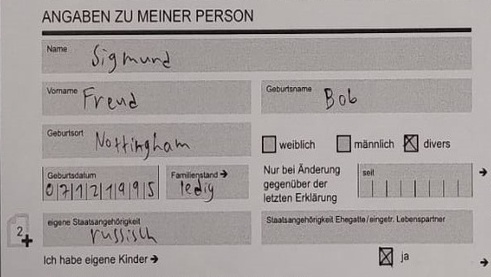 ANGABEN ZU MEINER PERSON
Name
Sigmund
Vorname
Freud
Geburtsname
Bob
Geburtsort
Nottingham
weiblich männlich divers
Geburtsdatum
07121995
Familienstand →
ledig
Nur bei Änderung
gegenüber der
letzten Erklärung
seit
→
eigene Staatsangehörigkeit
russisch
Staatsangehörigkeit Ehegatte/eingetr. Lebenspartner
2+
Ich habe eigene Kinder →
ja
→